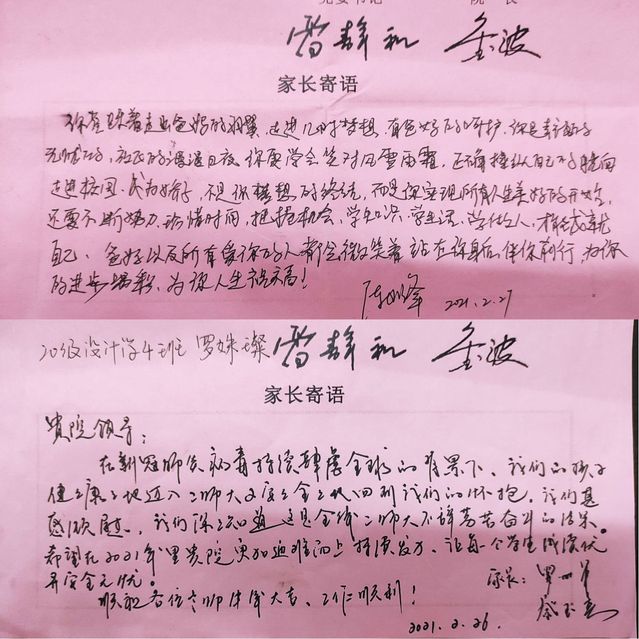 党委书记 院长
曾静和 金波
家长寄语
你在踩着走出爸妈的羽翼,走进几时梦想,有爸妈的呵护,你是幸福的
无忧的,社会的漫漫日夜,你要学会笑对风雪雨霜,正确操纵自己的航向
走进校园、成为女子,不是你梦想的终结,而是你实现所有人生美好的开始,
还要不断努力、珍惜时间,把握机会、学知识、学生活、学做人,才能成就
自己。爸妈以及所有爱你的人都会微笑着站在你身后,伴你前行,为你
的进步喝彩,为你人生祝福!
峰
2021.2.27
20级设计学4班 罗姝璨 曾静和 金波
家长寄语
贵院领导:
在新冠肺炎病毒持续肆虐全球的背景下,我们的孩子
健健康康地迈入二师大又安安全全地回到我们的怀抱,我们甚
感欣慰,我们深深知道这是全体二师大不辞劳苦奋斗的结果。
希望在2021年里贵院更加迎难而上持续发力,让每一个学生成绩优
异安全无忧。
顺祝各位老师牛年大吉、工作顺利!
家长:罗
2021.2.26.